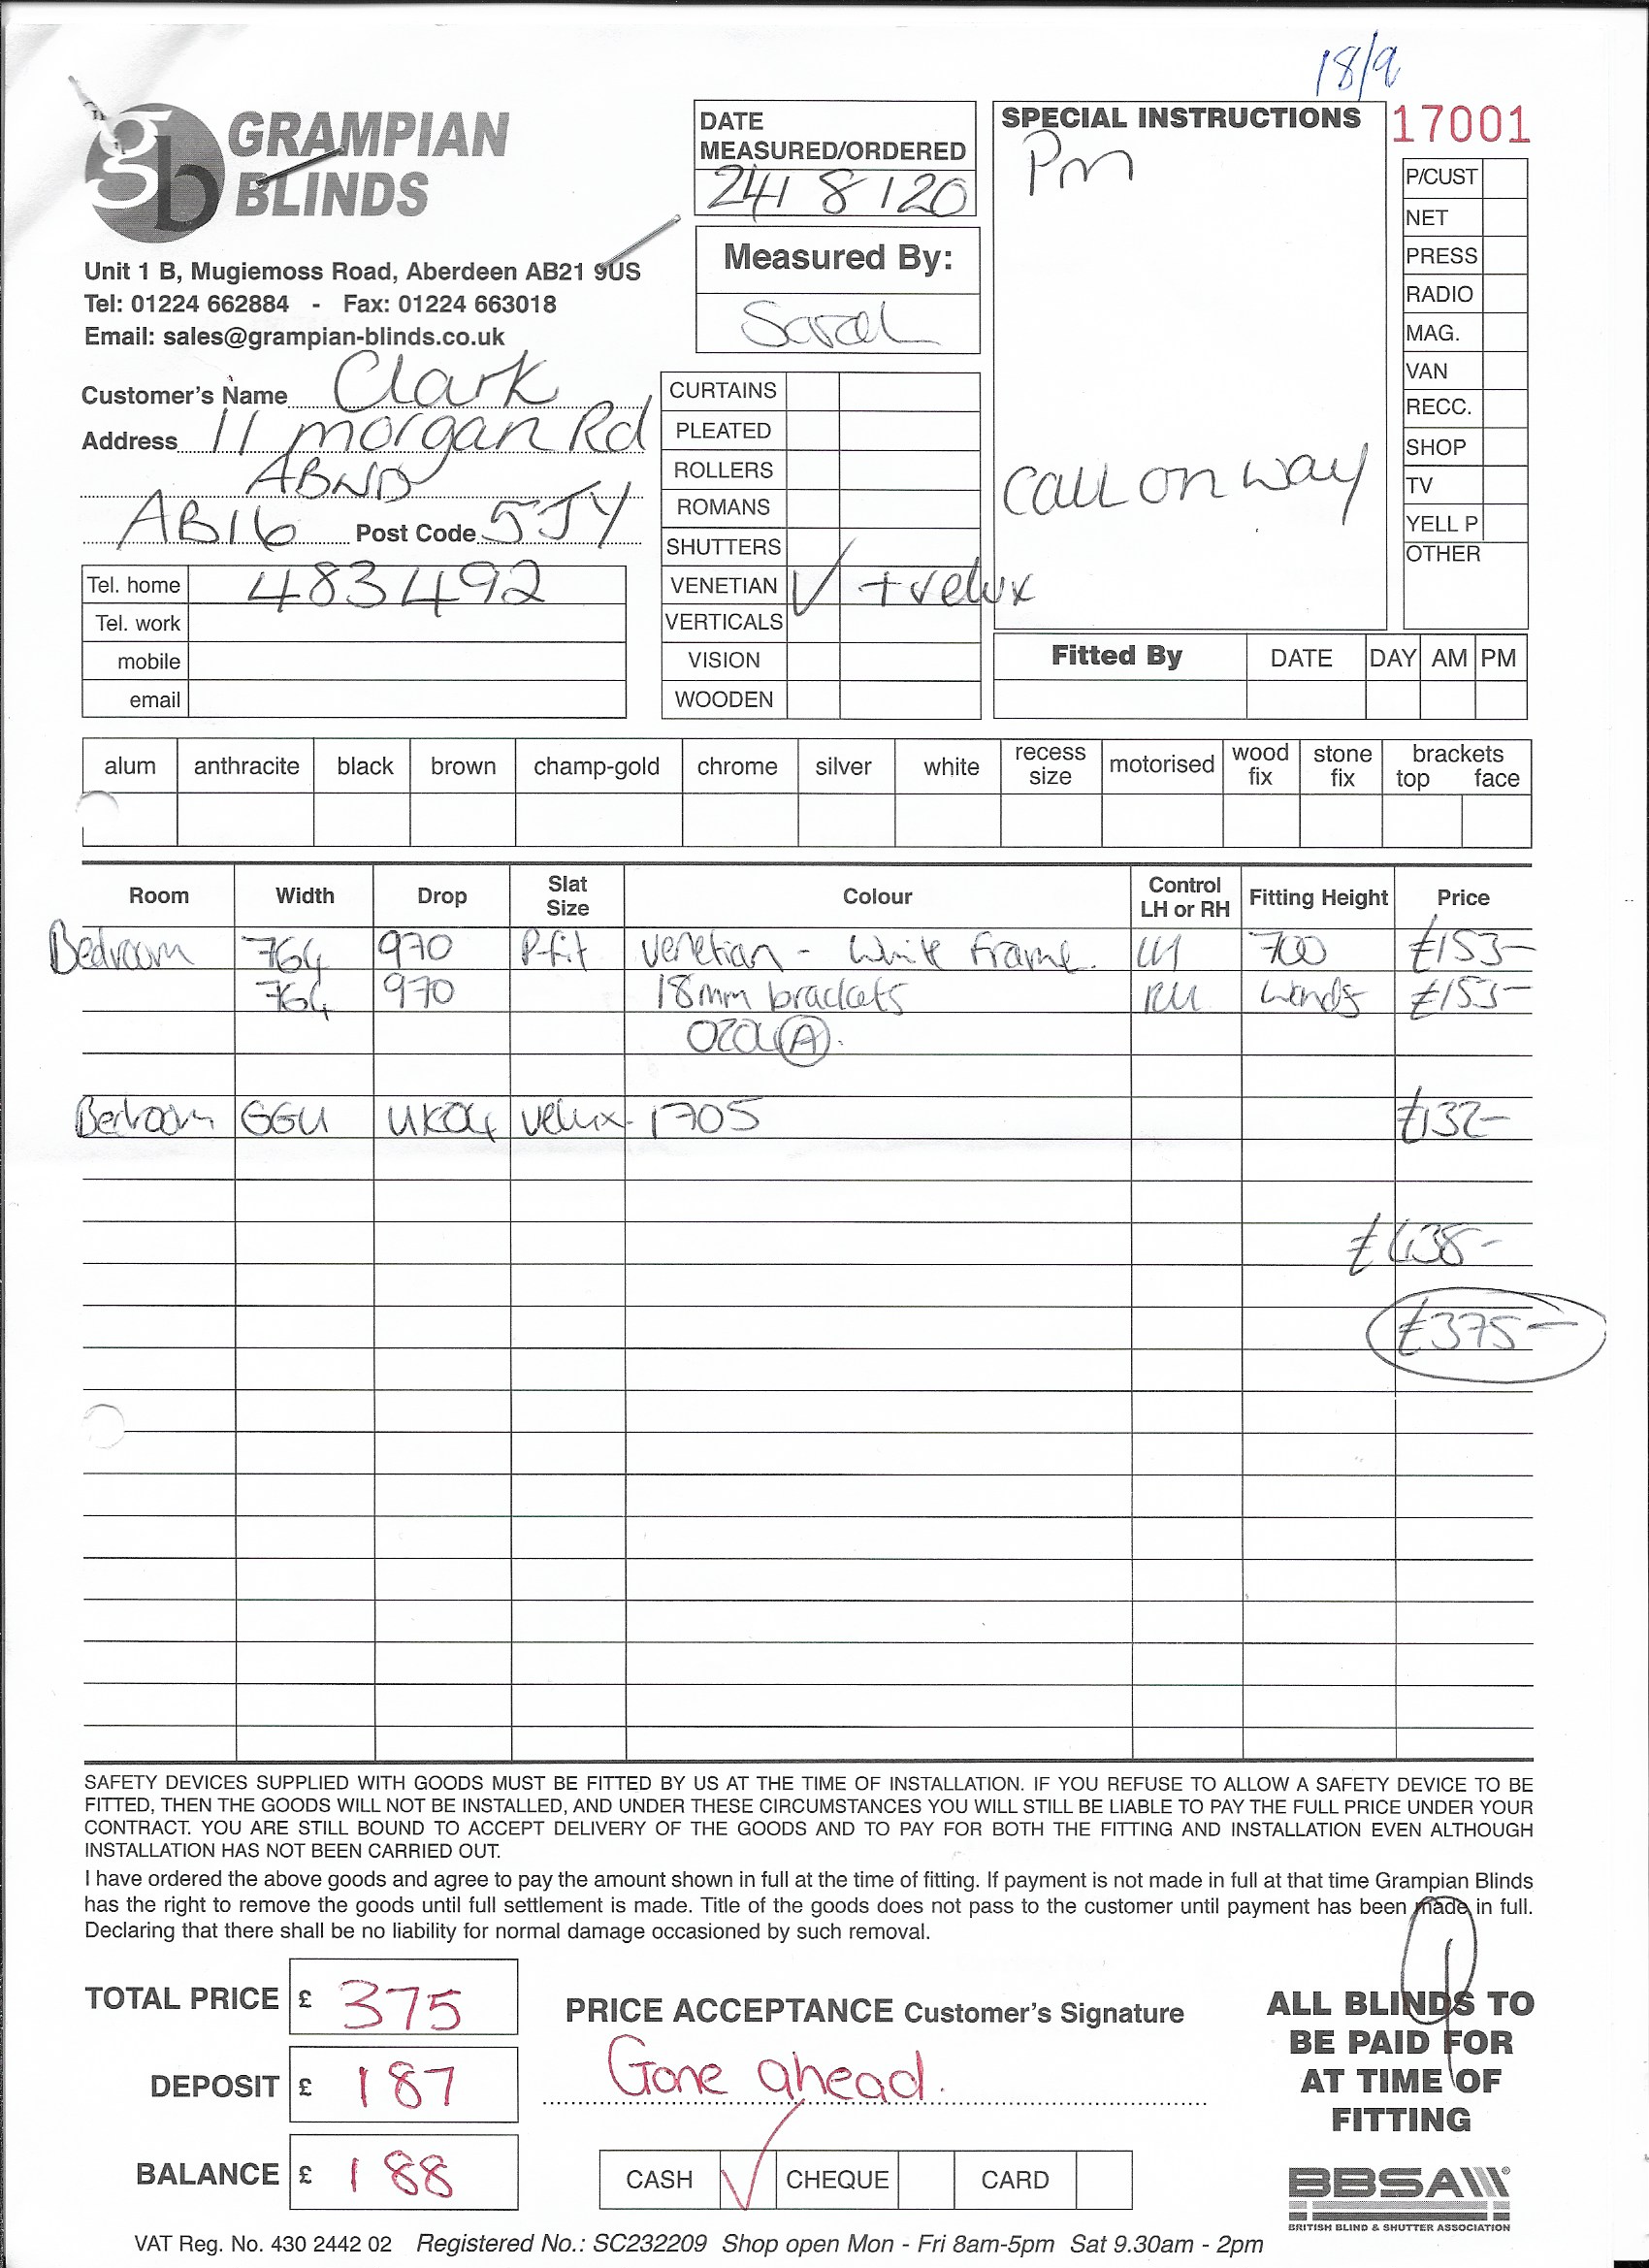 18/9
GRAMPIAN
BLINDS
gb
Unit 1 B, Mugiemoss Road, Aberdeen AB21 9US
Tel: 01224 662884 - Fax: 01224 663018
Email: sales@grampian-blinds.co.uk
DATE
MEASURED/ORDERED
24/8/20
Measured By:
Sarah
SPECIAL INSTRUCTIONS
Pm
Call on way
17001
P/CUST
NET
PRESS
RADIO
MAG.
VAN
RECC.
SHOP
TV
YELL P
OTHER
Customer's Name Clark
Address 11 Morgan Rd
ABND
AB16 Post Code 5JY
Tel. home 483492
Tel. work
mobile
email
CURTAINS
PLEATED
ROLLERS
ROMANS
SHUTTERS
VENETIAN ✓ + velux
VERTICALS
VISION
WOODEN
Fitted By DATE DAY AM PM
alum anthracite black brown champ-gold chrome silver white recess size motorised wood fix stone fix brackets top face
Room Width Drop Slat Size Colour Control LH or RH Fitting Height Price
Bedroom 764 970 P-fit Venetian - White Frame. LH 700 £153-
764 970 18mm brackets RH wands £153-
A
Bedroom GGU UK04 Velux - 1705 £132-
£438-
£375-
SAFETY DEVICES SUPPLIED WITH GOODS MUST BE FITTED BY US AT THE TIME OF INSTALLATION. IF YOU REFUSE TO ALLOW A SAFETY DEVICE TO BE
FITTED, THEN THE GOODS WILL NOT BE INSTALLED, AND UNDER THESE CIRCUMSTANCES YOU WILL STILL BE LIABLE TO PAY THE FULL PRICE UNDER YOUR
CONTRACT. YOU ARE STILL BOUND TO ACCEPT DELIVERY OF THE GOODS AND TO PAY FOR BOTH THE FITTING AND INSTALLATION EVEN ALTHOUGH
INSTALLATION HAS NOT BEEN CARRIED OUT.
I have ordered the above goods and agree to pay the amount shown in full at the time of fitting. If payment is not made in full at that time Grampian Blinds
has the right to remove the goods until full settlement is made. Title of the goods does not pass to the customer until payment has been made in full.
Declaring that there shall be no liability for normal damage occasioned by such removal.
TOTAL PRICE £ 375
DEPOSIT £ 187
BALANCE £ 188
PRICE ACCEPTANCE Customer's Signature
Gone ahead.
CASH ✓ CHEQUE CARD
ALL BLINDS TO
BE PAID FOR
AT TIME OF
FITTING
BBSA
BRITISH BLIND & SHUTTER ASSOCIATION
VAT Reg. No. 430 2442 02 Registered No.: SC232209 Shop open Mon - Fri 8am-5pm Sat 9.30am - 2pm